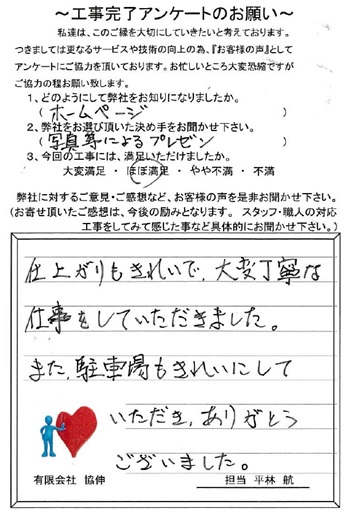 ～工事完了アンケートのお願い～
私達は、このご縁を大切にしていきたいと考えております。
つきましては更なるサービスや技術の向上の為、『お客様の声』として
アンケートにご協力を頂いております。お忙しいところ大変恐縮ですが
ご協力の程お願い致します。
1、どのようにして弊社をお知りになりましたか。
(ホームページ)
2、弊社をお選び頂いた決め手をお聞かせ下さい。
(写真等によるプレゼン)
3、今回の工事には、満足いただけましたか。
大変満足 ・ ほぼ満足 ・ やや不満 ・ 不満
弊社に対するご意見・ご感想など、お客様の声を是非お聞かせ下さい。
(お寄せ頂いたご感想は、今後の励みとなります。 スタッフ・職人の対応
工事をしてみて感じた事など具体的にお聞かせ下さい。)
仕上がりもきれいで、大変丁寧な
仕事をしていただきました。
また、駐車場もきれいにして
いただき、ありがとう
ございました。
有限会社 協伸
担当 平林 航